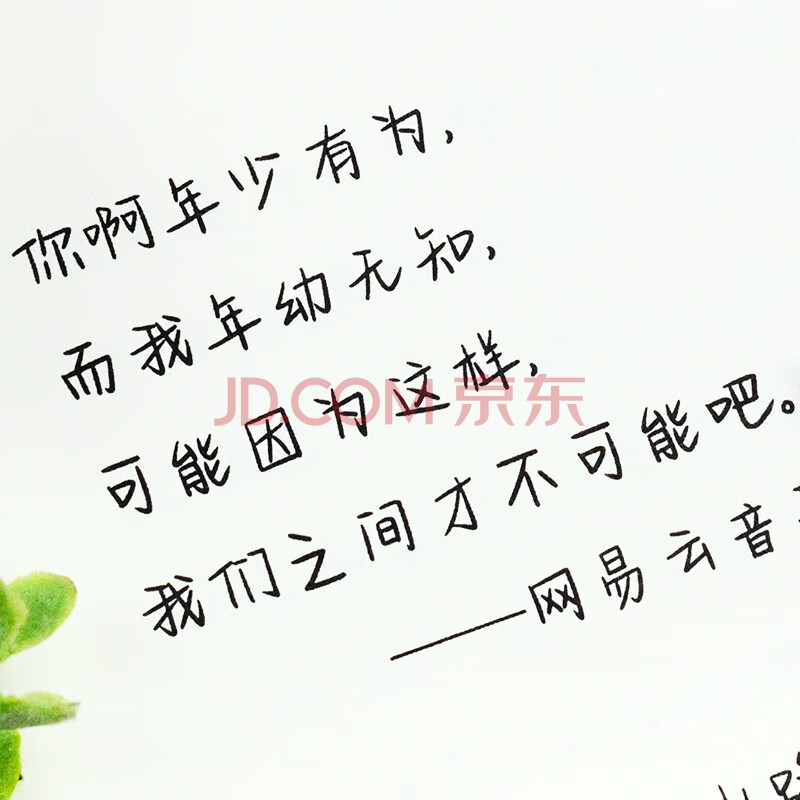 你啊年少有为,
而我年幼无知,
可能因为这样,
JD.COM 京东
我们之间才不可能吧。
——网易云音